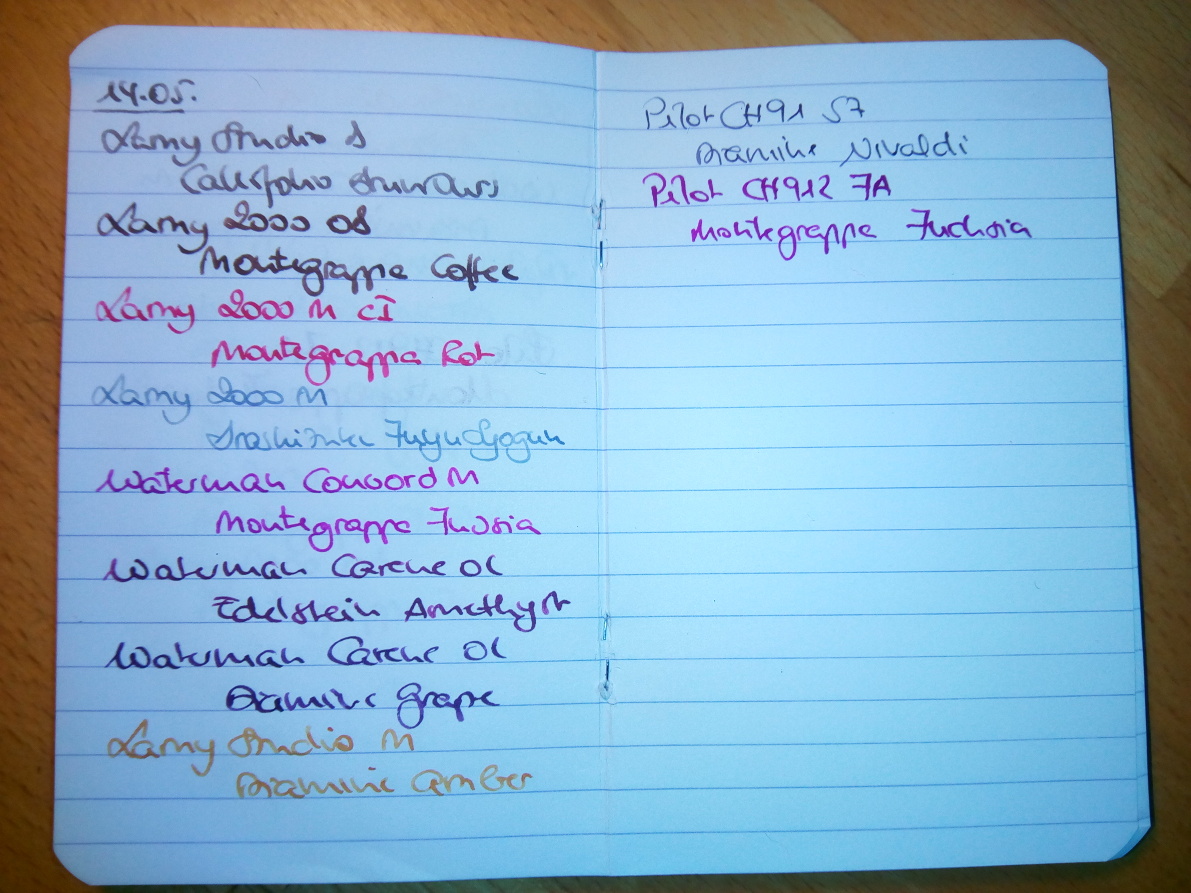 14.05.
Lamy Studio B
Callifolio
Lamy 2000 OB
Montegrappa Coffee
Lamy 2000 M CI
Montegrappa Rot
Lamy 2000 M
Iroshizuku Fuyu Syogun
Waterman Concord M
Montegrappa Fucsia
Waterman Carene OC
Edelstein Amethyst
Waterman Carene OC
Diamine Grape
Lamy Studio M
Diamine Amber
Pilot CH91 SF
Diamine Vivaldi
Pilot CH912 FA
Montegrappa Fuchsia